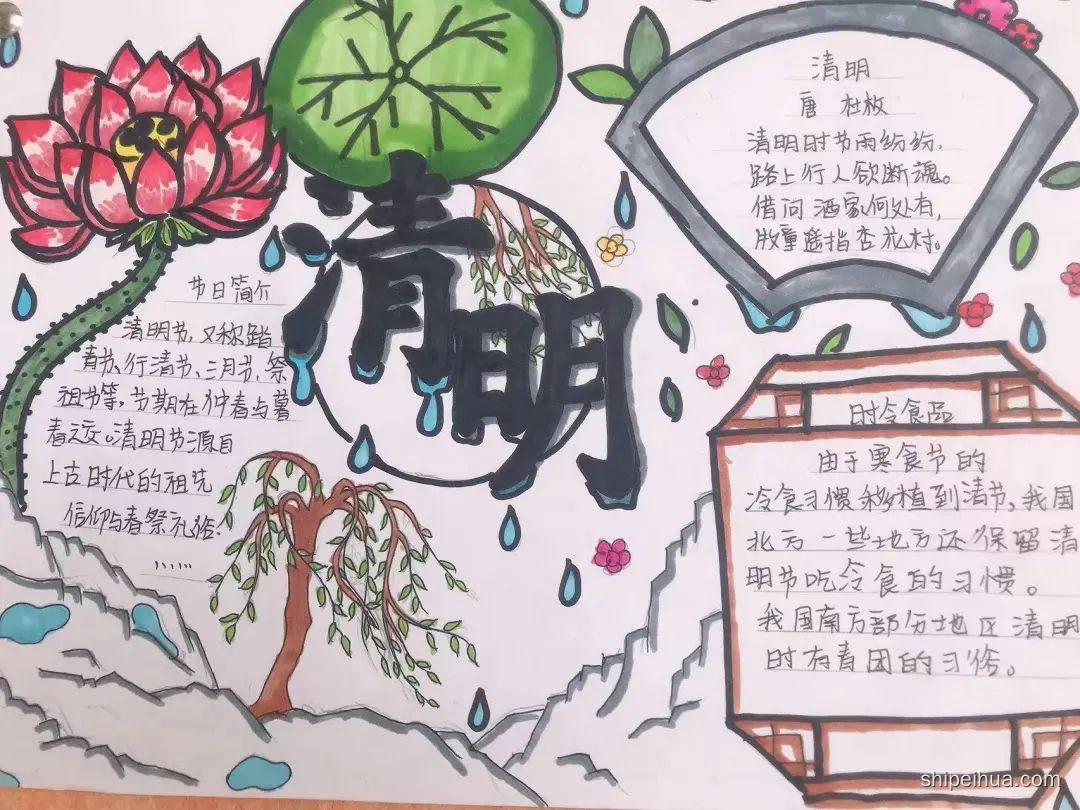 清明
节日简介
清明节,又称踏
青节、行清节、三月节、祭
祖节等,节期在仲春与暮
春之交。清明节源自
上古时代的祖先
信仰与春祭礼俗.
……
清明
唐 杜牧
清明时节雨纷纷,
路上行人欲断魂。
借问酒家何处有,
牧童遥指杏花村。
时令食品
由于寒食节的
冷食习惯移植到清节,我国
北方一些地方还保留清
明节吃冷食的习惯。
我国南方部分地区清明
时有青团的习俗。
shipeihua.com